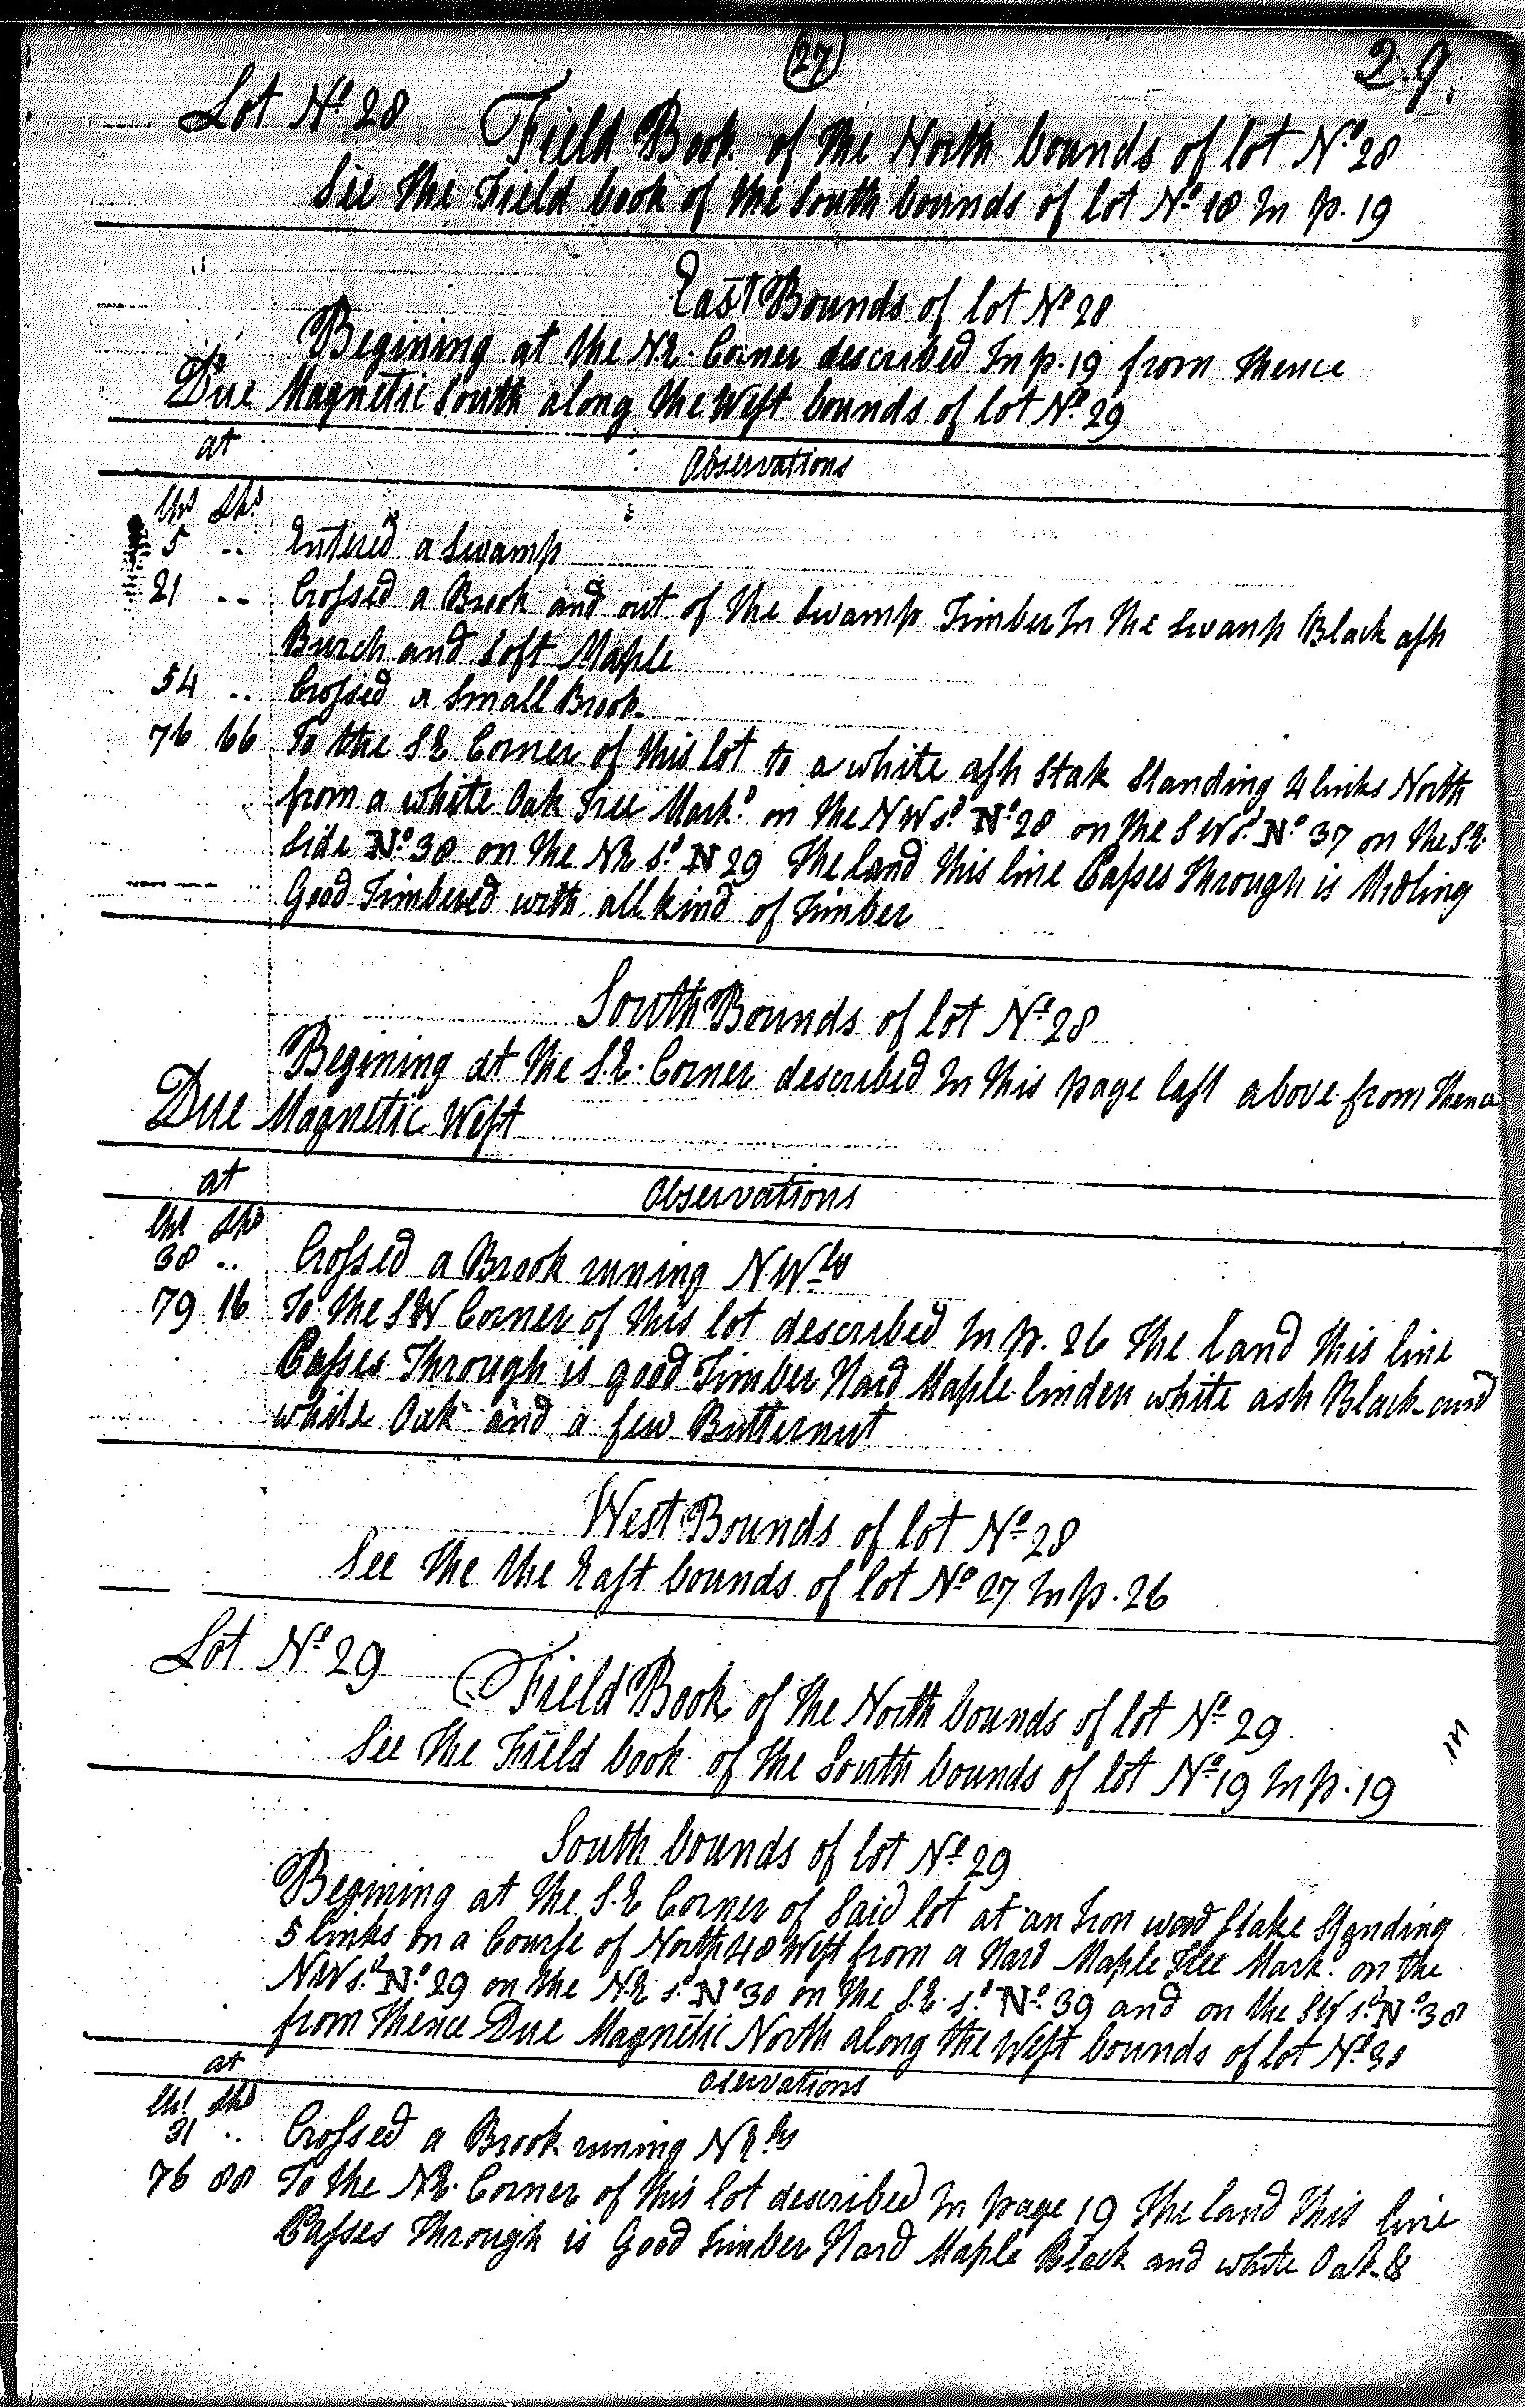 (27)
29.
Lot Nº 28 Field Book of the North bounds of lot Nº 28
See the Field book of the South bounds of lot Nº 18 In p. 19
East Bounds of lot Nº 28
Begining at the N.E. Corner described In p. 19 from thence
Due Magnetic South along the West bounds of lot Nº 29
at Observations
Chs Lks
5 .. Entered a Swamp
21 .. Crossed a Brook and out of the Swamp Timber In the Swamp Black ash
Burch and Soft Maple
54 .. Crossed a Small Brook
76 66 To the S E Corner of this lot to a white ash Stak Standing 4 links North
from a white Oak Tree Markd on the N W sd Nº 28 on the S W sd Nº 37 on the S E
Side Nº 38 on the N E sd N 29 The land this line Passes Through is Midling
Good Timbered with all kind of Timber
South Bounds of lot Nº 28
Begining at the S.E. Corner described In this page last above from thence
Due Magnetic West
at Observations
Chs Lks
38 .. Crossed a Brook runing N Wly
79 16 To the S W Corner of this lot described In p. 26 The land this line
Passes Through is good Timber Hard Maple linden white ash Black and
white Oak and a few Butternut
West Bounds of lot Nº 28
See the the East bounds of lot Nº 27 In p. 26
Lot Nº 29 Field Book of the North bounds of lot Nº 29
See the Field book of the South bounds of lot Nº 19 In p. 19
South bounds of lot Nº 29
Begining at the S.E Corner of Said lot at an Iron wood Stake Standing
5 links on a Course of North 48 West from a Hard Maple Tree Markd on the
N W sd Nº 29 on the N.E sd Nº 30 on the S.E. sd Nº 39 and on the S W sd Nº 38
from thence Due Magnetic North along the West bounds of lot Nº 30
at Oservations
Chs Lks
31 .. Crossed a Brook runing N Ely
76 88 To the N E. Corner of this lot described In page 19 The land this line
Passes Through is Good Timber Hard Maple Black and white Oak &